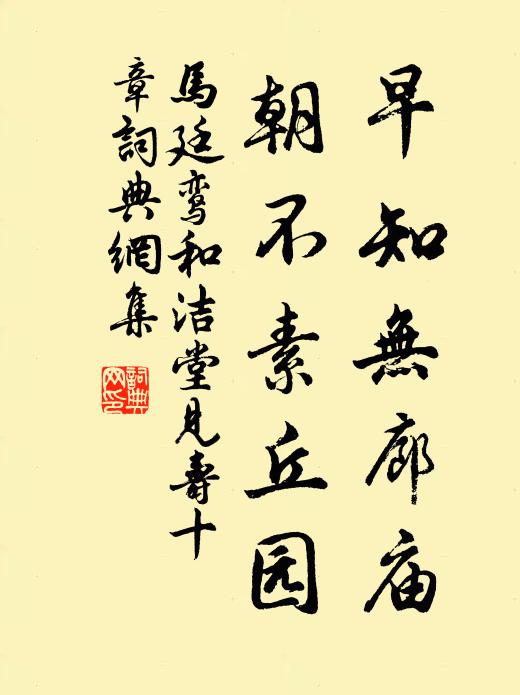 早知無廊庙
朝不素丘园
馬廷鸾和洁堂見壽十
章詞典網集
詞典
网印